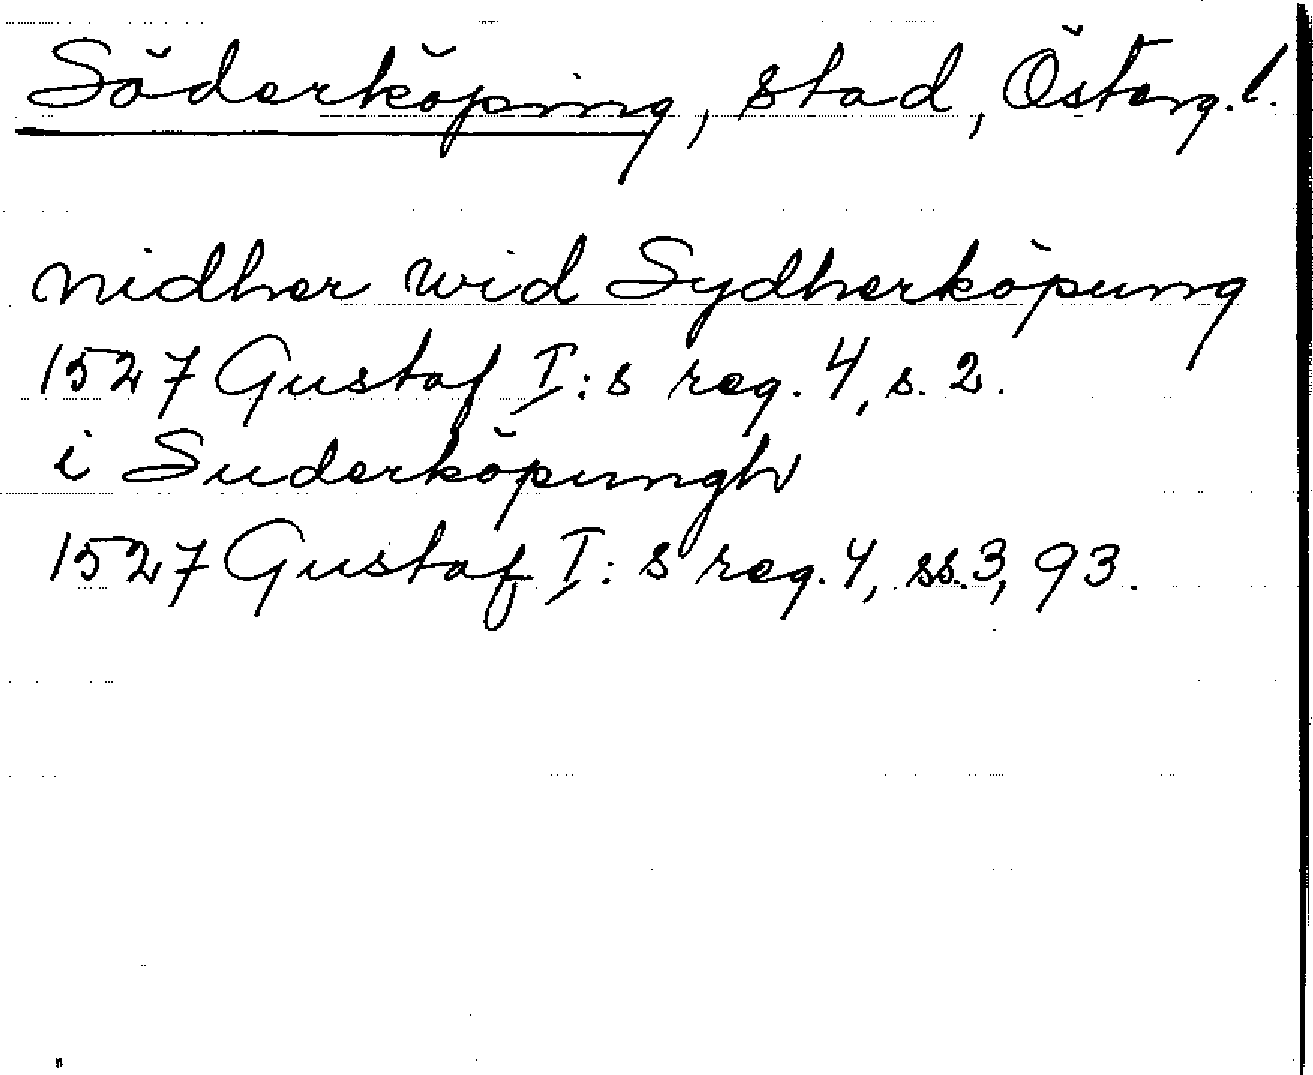 Söderköping, stad, Österg. l.
nidher wid Sydherköpung
1527 Gustaf I:s reg. 4, s. 2.
i Suderköpungh
1527 Gustaf I:s reg. 4, ss. 3, 93.